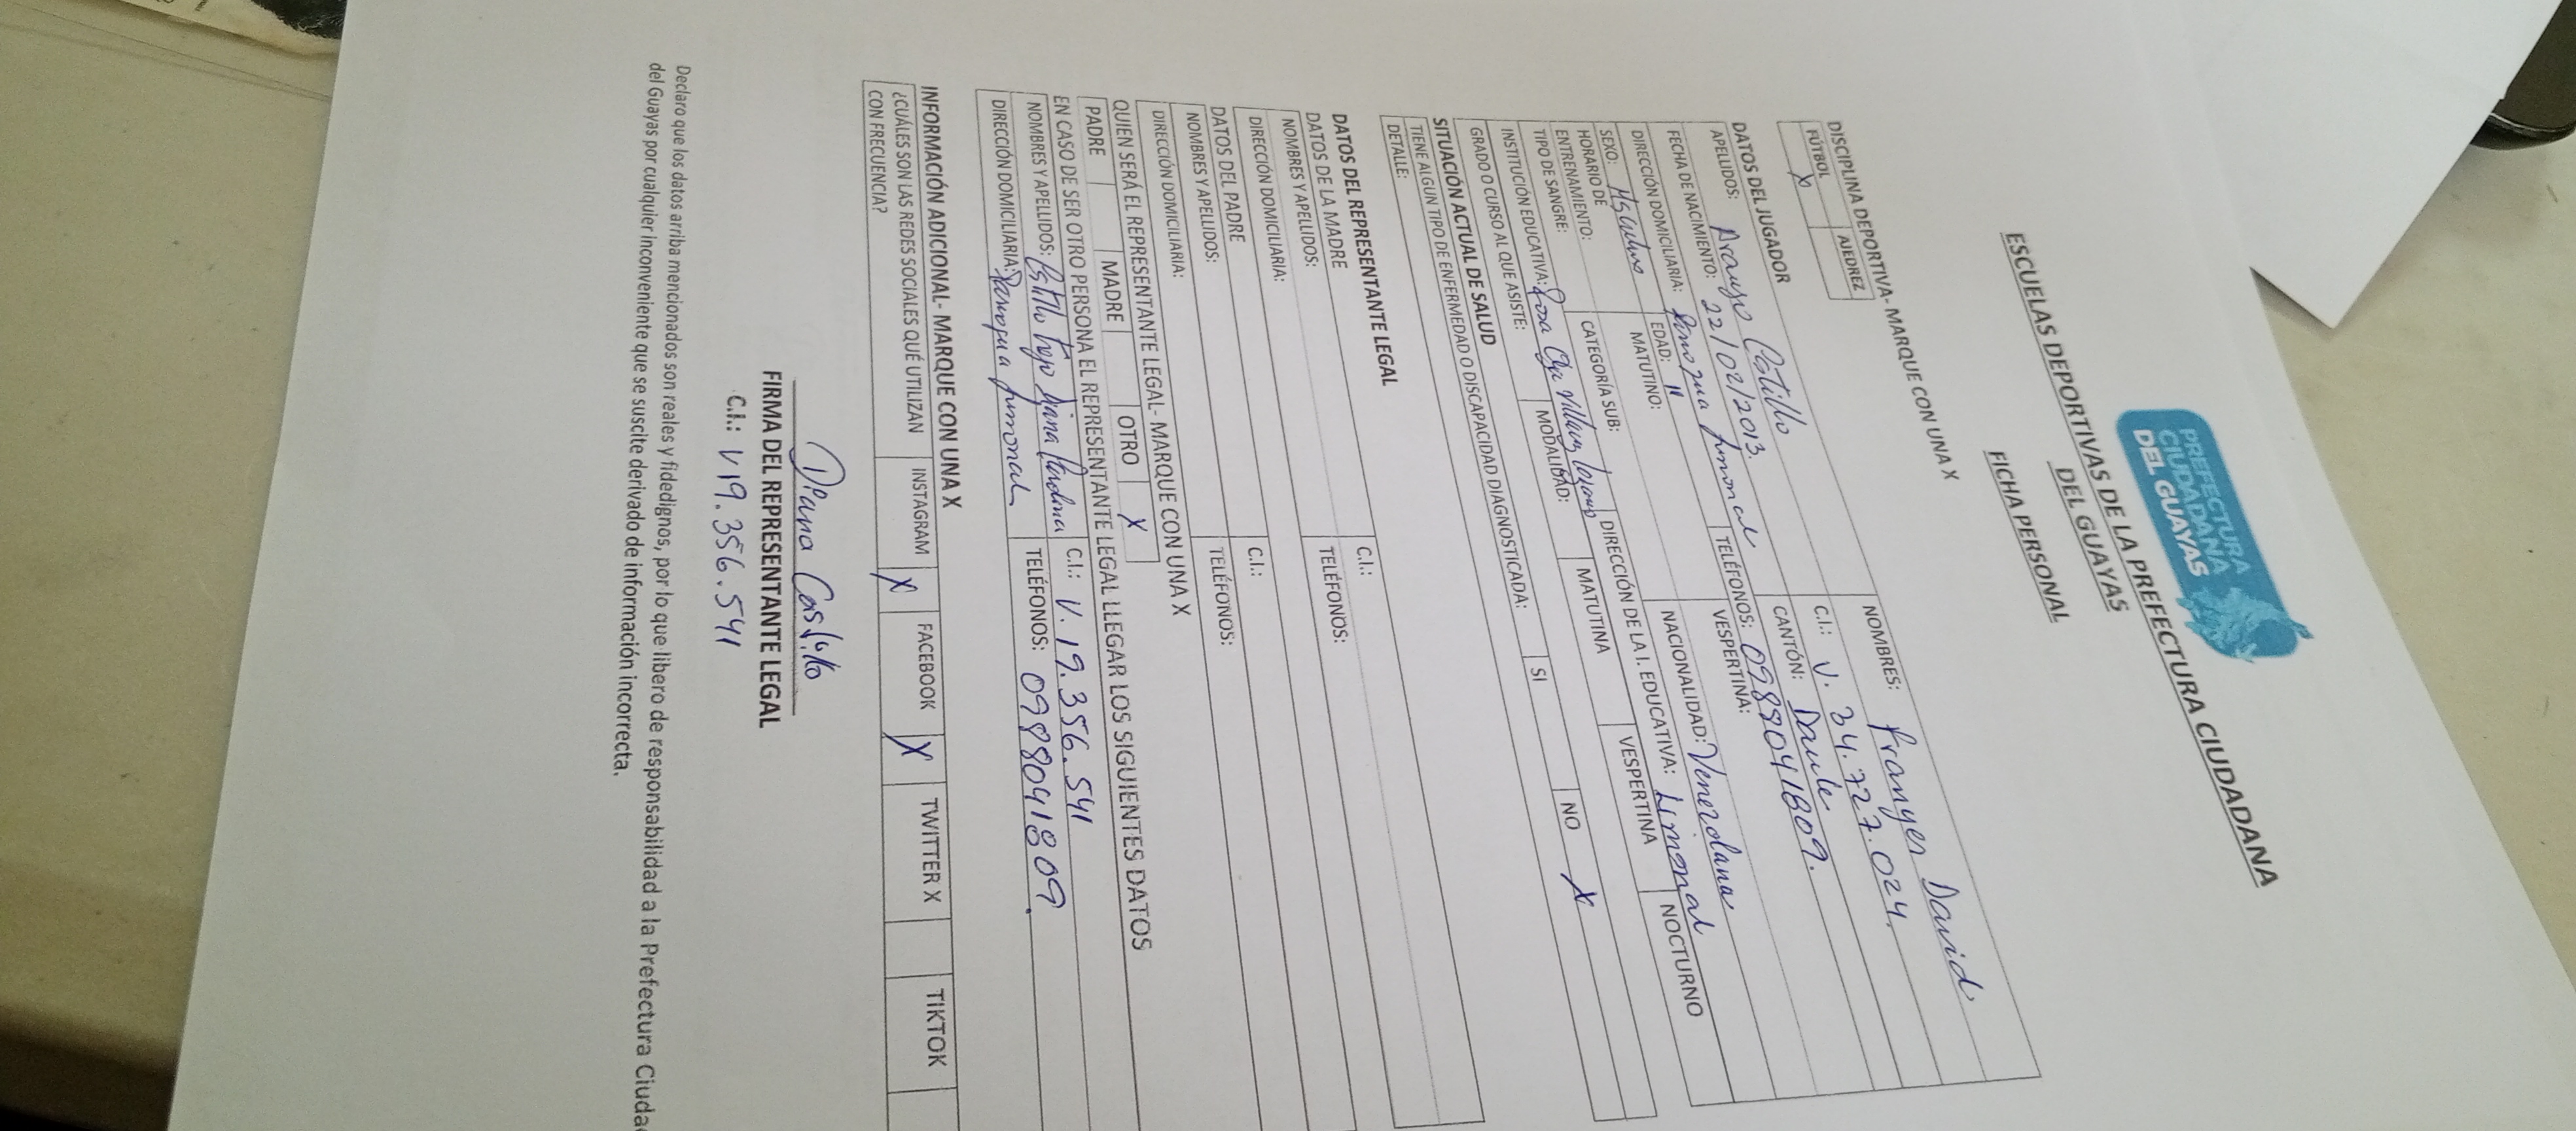 PREFECTURA
CIUDADANA
DEL GUAYAS
ESCUELAS DEPORTIVAS DE LA PREFECTURA CIUDADANA
DEL GUAYAS
FICHA PERSONAL
DISCIPLINA DEPORTIVA- MARQUE CON UNA X
FÚTBOL X AJEDREZ
DATOS DEL JUGADOR
APELLIDOS: Araujo Castillo NOMBRES: Franyer David
FECHA DE NACIMIENTO: 22/02/2013. C.I.: V. 34.727.024.
DIRECCIÓN DOMICILIARIA: limonal CANTÓN: Daule
SEXO: EDAD: 11 TELÉFONOS: 0988041809. NACIONALIDAD: Venezolana
HORARIO DE ENTRENAMIENTO: MATUTINO: VESPERTINA:
TIPO DE SANGRE: CATEGORÍA SUB:
INSTITUCIÓN EDUCATIVA: Rosa Olga Villacis Lozano DIRECCIÓN DE LA I. EDUCATIVA: Limonal
GRADO O CURSO AL QUE ASISTE: MODALIDAD: MATUTINA VESPERTINA NOCTURNO
SITUACIÓN ACTUAL DE SALUD
TIENE ALGUN TIPO DE ENFERMEDAD O DISCAPACIDAD DIAGNOSTICADA: SI NO X
DETALLE:
DATOS DEL REPRESENTANTE LEGAL
DATOS DE LA MADRE
NOMBRES Y APELLIDOS: C.I.:
DIRECCIÓN DOMICILIARIA: TELÉFONOS:
DATOS DEL PADRE
NOMBRES Y APELLIDOS: C.I.:
DIRECCIÓN DOMICILIARIA: TELÉFONOS:
QUIEN SERÁ EL REPRESENTANTE LEGAL- MARQUE CON UNA X
PADRE MADRE OTRO X
EN CASO DE SER OTRO PERSONA EL REPRESENTANTE LEGAL LLEGAR LOS SIGUIENTES DATOS
NOMBRES Y APELLIDOS: Castillo Diana Carolina C.I.: V. 19.356.541
DIRECCIÓN DOMICILIARIA: limonal TELÉFONOS: 0988041809.
INFORMACIÓN ADICIONAL- MARQUE CON UNA X
¿CUÁLES SON LAS REDES SOCIALES QUÉ UTILIZAN CON FRECUENCIA? INSTAGRAM X FACEBOOK X TWITTER X TIKTOK
Diana Castillo
FIRMA DEL REPRESENTANTE LEGAL
C.I.: V19.356.541
Declaro que los datos arriba mencionados son reales y fidedignos, por lo que libero de responsabilidad a la Prefectura Ciuda
del Guayas por cualquier inconveniente que se suscite derivado de información incorrecta.